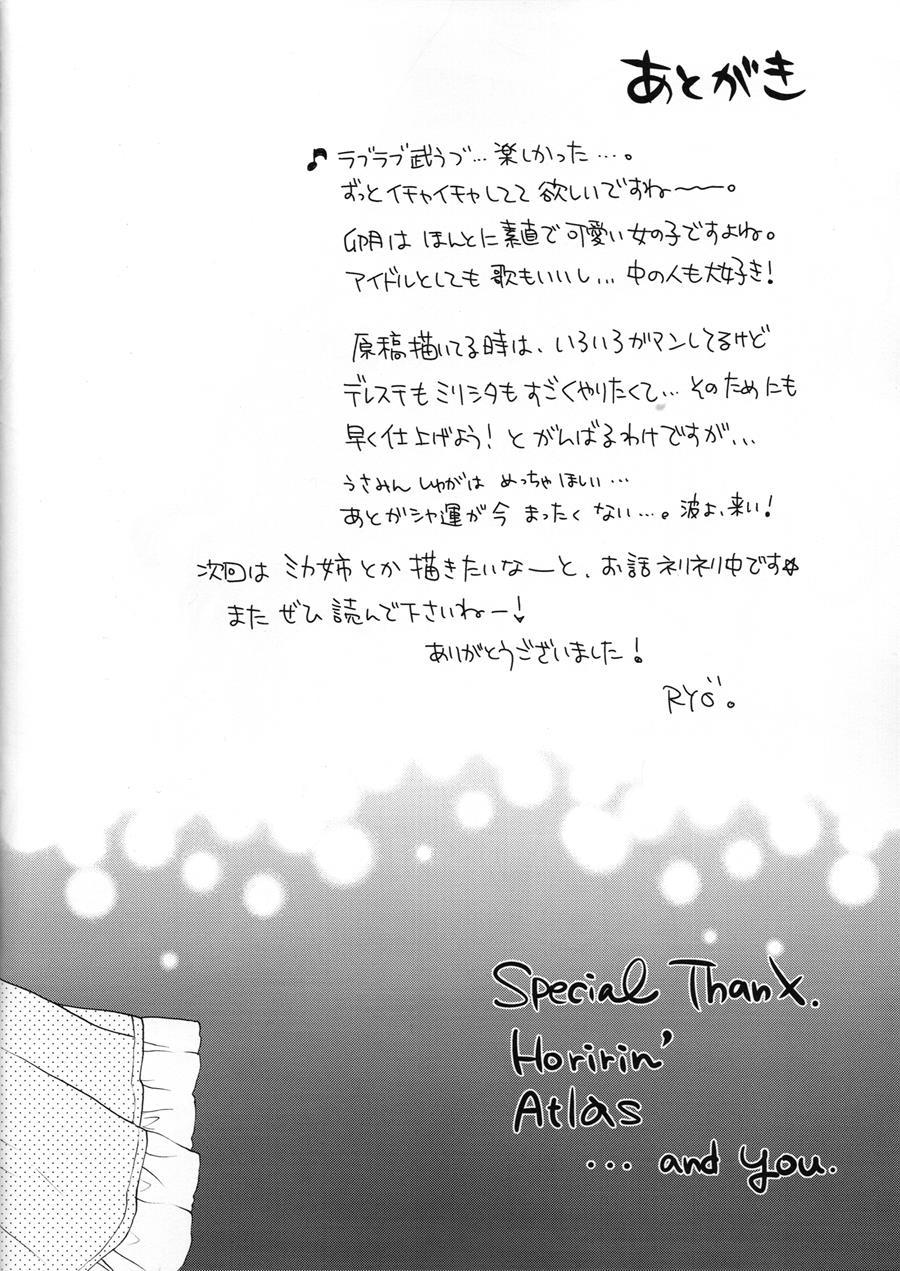 あとがき
♪ラブラブ武うづ…楽しかった…。
ずっとイチャイチャしてて欲しいですね〜〜。
卯月は ほんとに素直で可愛い女の子ですよね。
アイドルとしても 歌もいいし… 中の人も大好き!
原稿描いてる時は、いろいろガマンしてるけど
デレステも ミリシタも すごくやりたくて… そのためにも
早く仕上げよう! と がんばるわけですが、、、
うさみん しゅがは めっちゃ ほしい…
あとガシャ運が今 まったく ない…。波よ、来い!
次回は ミカ姉 とか 描きたいなーと、お話ネリネリ中です☆
また ぜひ 読んで下さいねー!
ありがとうございました!
RYÖ。
Special Thanx.
Horirin'
Atlas
... and you.